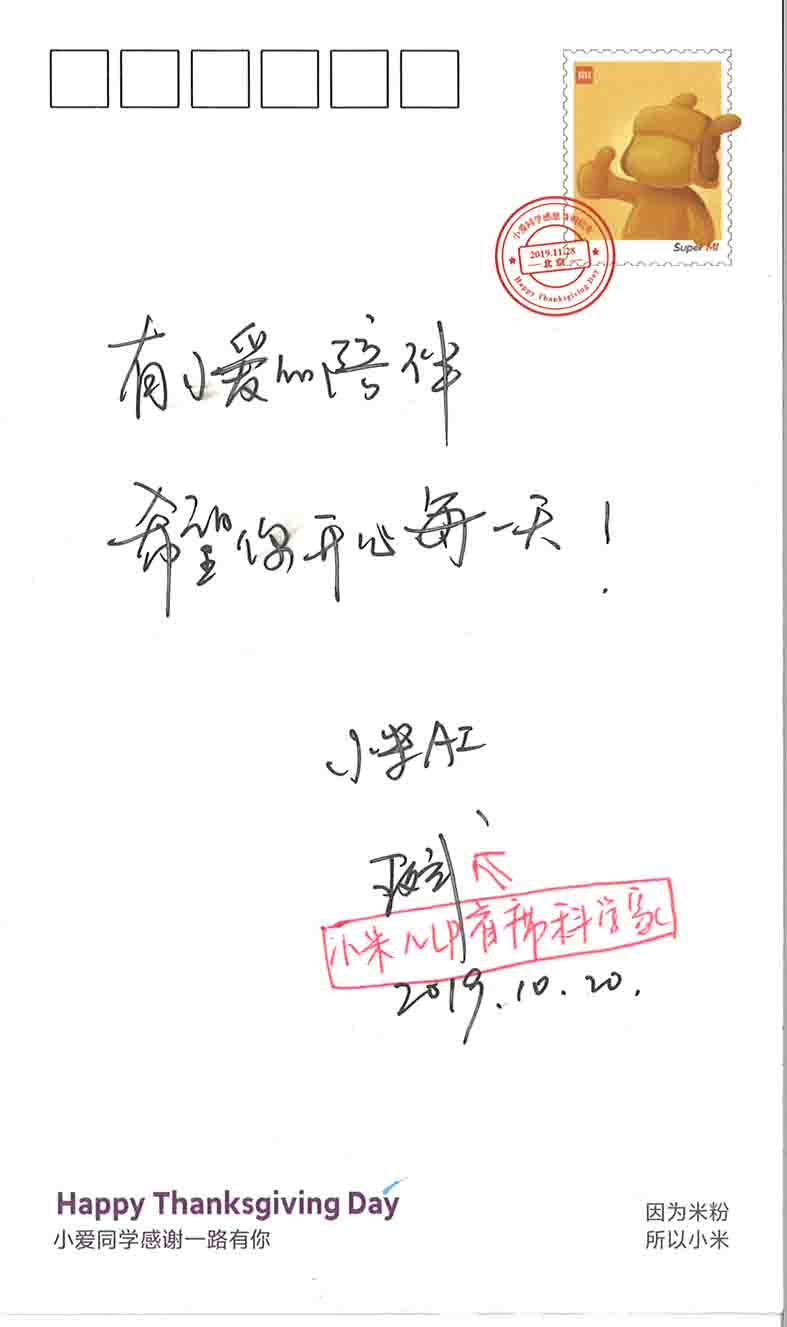 MI
Super MI
小爱同学感恩
2019.11.28
北京
Happy Thanksgiving Day
有小爱的陪伴
希望你开心每一天！
小米AI
小米NLP首席科学家
2019.10.20.
Happy Thanksgiving Day
小爱同学感谢一路有你
因为米粉
所以小米